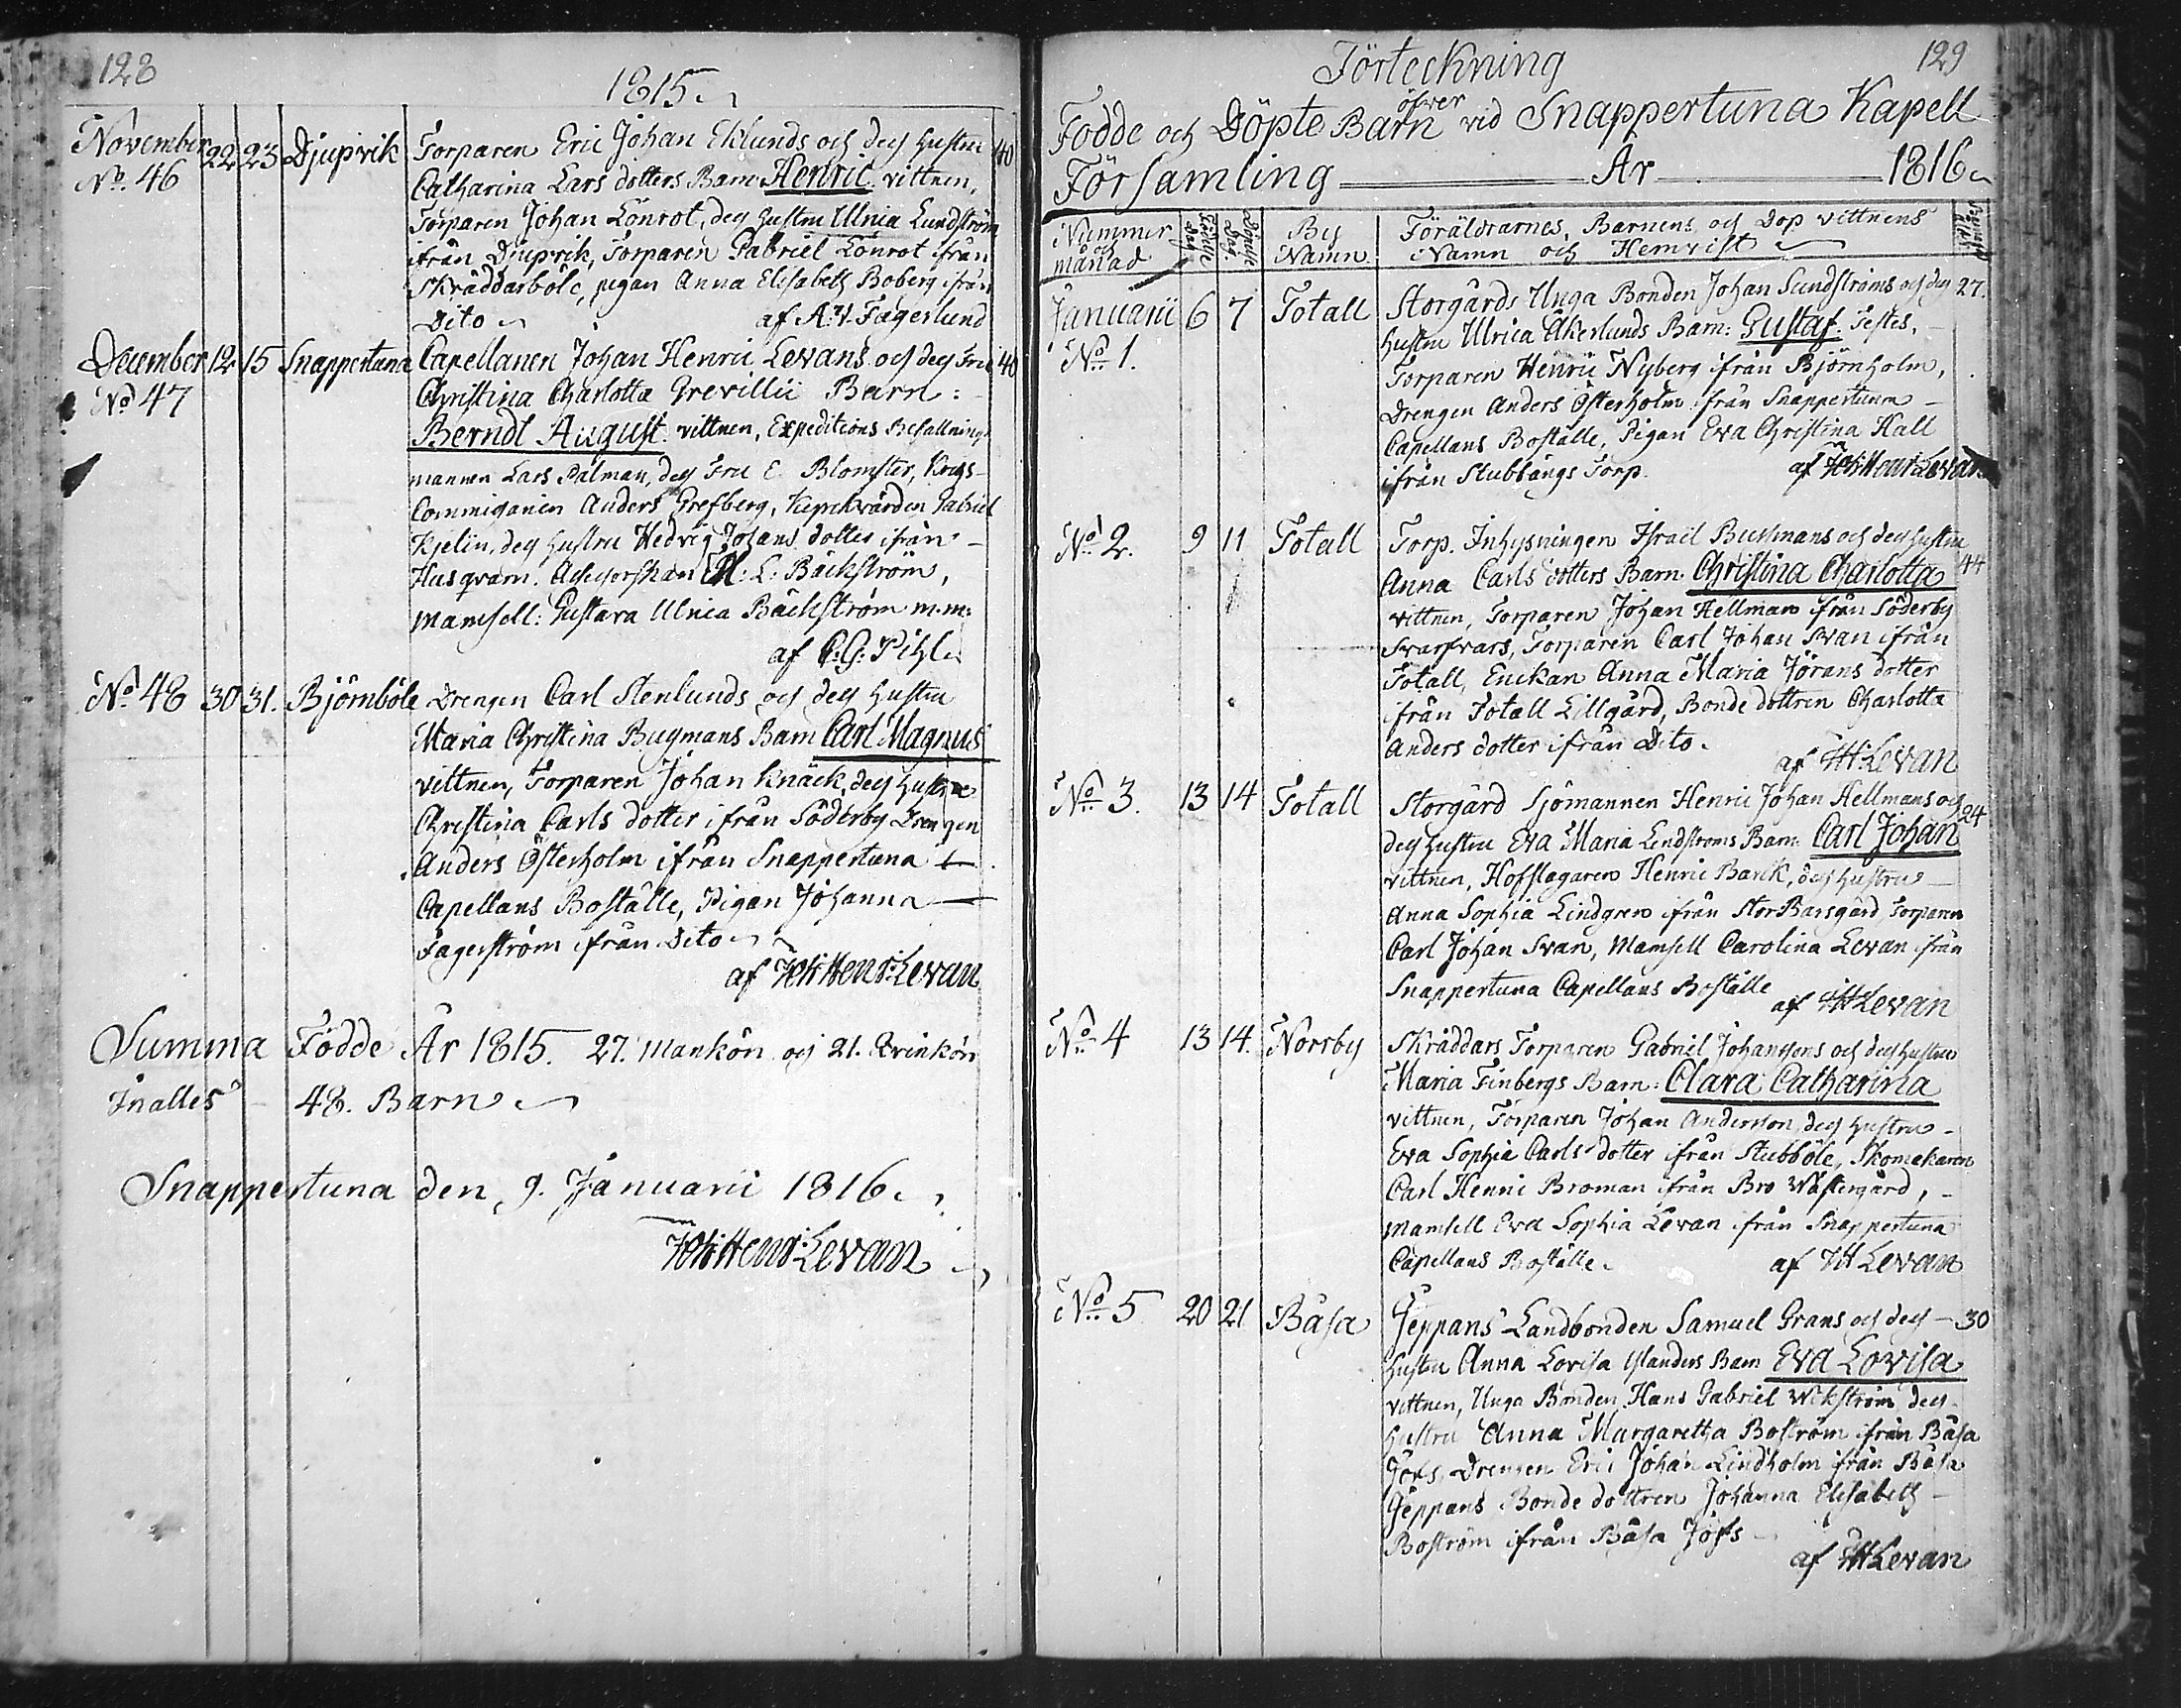 128
1815
November 22 23 Djupvik Torparen Eric Johan Eklunds och dess hustru 40
No 46 Catharina Lars dotters Barn Henric. vittnen,
Torparen Johan Lönrot, dess hustru Ulrica Lundström
ifrån Djupvik, Torparen Gabriel Lönrot ifrån
Skräddarböle, pigan Anna Elisabeth Boberg ifrån
Dito af A.V. Fagerlund
December 12 15 Snappertuna Capellanen Johan Henric Levans och dess Fru 40
No 47 Christina Charlotta Grevillii Barn:
Berndt August. vittnen, Expeditions Befallnings
mannen Lars Palman, dess Fru E. Blomster, Krigs-
Commissarien Anders Grefberg, Kyrckvärden Gabriel
Kjelin, dess hustru Hedvig Johans dotter ifrån
Husqvarn. L: Bäckström,
Mamsell: Gustava Ulrica Bäckström m.m:
af C.G: Pihl
No 48 30 31. Björnböle Drengen Carl Stenlunds och dess hustru
Maria Christina Bugmans Barn Carl Magnus
vittnen, Torparen Johan Knäck, dess hustru
Christina Carls dotter ifrån Söderby Drengen
Anders Österholm ifrån Snappertuna
Capellans Boställe, Pigan Johanna
Fagerström ifrån Dito
af Joh: Henr: Levan
Summa Födde År 1815. 27. Mankön och 21. Qvinkön
Inalles 48. Barn
Snappertuna den, 9. Januarii 1816.
Joh: Henr: Levan
129
Förteckning
öfver
Födde och Döpte Barn vid Snappertuna Kapell
Församling År 1816
Nummer och månad Födelse Dag Döpelse Dag. By Namn Föräldrarnes, Barnens, och Dop vittnens Namn och Hemvist
Januarii 6 7 Totall Storgårds Unga Bonden Johan Sundströms och dess 27.
No 1. hustru Ulrica Åkerlunds Barn: Gustaf. Testes,
Torparen Henric Nyberg ifrån Björnholm,
Drengen Anders Österholm ifrån Snappertuna
Capellans Boställe, Pigan Eva Christina Hall
ifrån Stubbängs Torp. af Joh: Henr: Levan
No 2. 9 11 Totall Torp. Inhysningen Israel Busmans och dess hustru
Anna Carls dotters Barn. Christina Charlotta 44
vittnen, Torparen Johan Hellman ifrån Söderby
Svarfvars, Torparen Carl Johan Svan ifrån
Totall, Enckan Anna Maria Jörans dotter
ifrån Totall Lillgård, Bonde dottren Charlotta
Anders dotter ifrån Dito.
af JHLevan
No 3. 13 14 Totall Storgård Sjömannen Henric Johan Hellmans och 24
dess hustru Eva Maria Lindströms Barn Carl Johan
vittnen, Hofslagaren Henric Barck, dess hustru
Anna Sophia Lindgren ifrån StorBasgård Torparen
Carl Johan Svan, Mamsell Carolina Levan ifrån
Snappertuna Capellans Boställe af JHLevan
No 4 13 14. Norrby Skräddars Torparen Gabriel Johanssons och dess hustru
Maria Finbergs Barn: Clara Catharina
vittnen, Torparen Johan Andersson, dess hustru
Eva Sophia Carls dotter ifrån Stubböle, Skomakaren
Carl Henric Broman ifrån Bro Västergård,
Mamsell Eva Sophia Levan ifrån Snappertuna
Capellans Boställe. af JH Levan
No 5 20 21 Båsa Jeppans Landbonden Samuel Grans och dess 30
hustru Anna Lovisa Ylanders Barn Eva Lovisa
vittnen, Unga Bonden Hans Gabriel Wikström dess
hustru Anna Margaretha Boström ifrån Båsa
Jöfs, Drengen Eric Johan Lindholm ifrån Båsa
Jeppans Bonde dottren Johanna Elisabeth
Boström ifrån Båsa Jöfs
af JHLevan